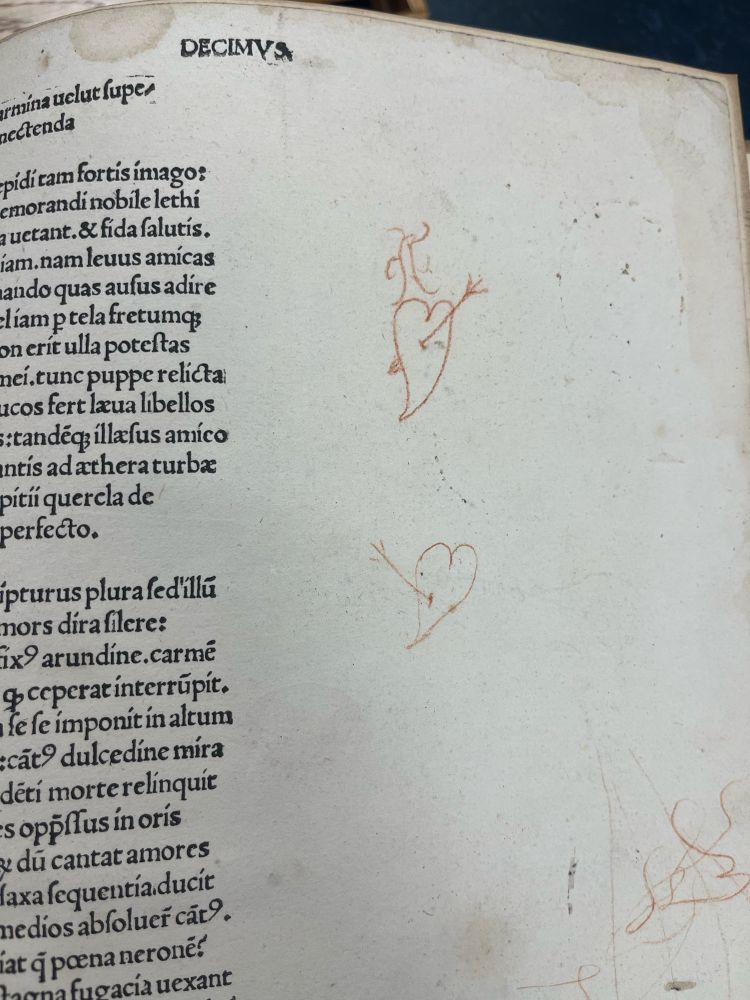 DECIMVS
armina uelut supe
nectenda
epidi tam fortis imago:
emorandi nobile lethi
a uetant. & fida salutis.
iam. nam leuus amicas
nando quas ausus adire
eliam ꝑ tela fretumqꝫ
on erit ulla potestas
mei. tunc puppe relicta
ucos fert læua libellos
s: tandēqꝫ illæsus amico
antis ad æthera turbæ
pitii querela de
perfecto.
ipturus plura sed illū
mors dira silere:
fixꝰ arundine. carmē
ꝙ ceperat interrūpit.
a se se imponit in altum
: cātꝰ dulcedine mira
dēti morte relinquit
es opp̄ssus in oris
& dū cantat amores
saxa sequentia. ducit
medios absoluer̄ cātꝰ.
iat q̄ pœna neronē?
stagna fugacia uexant